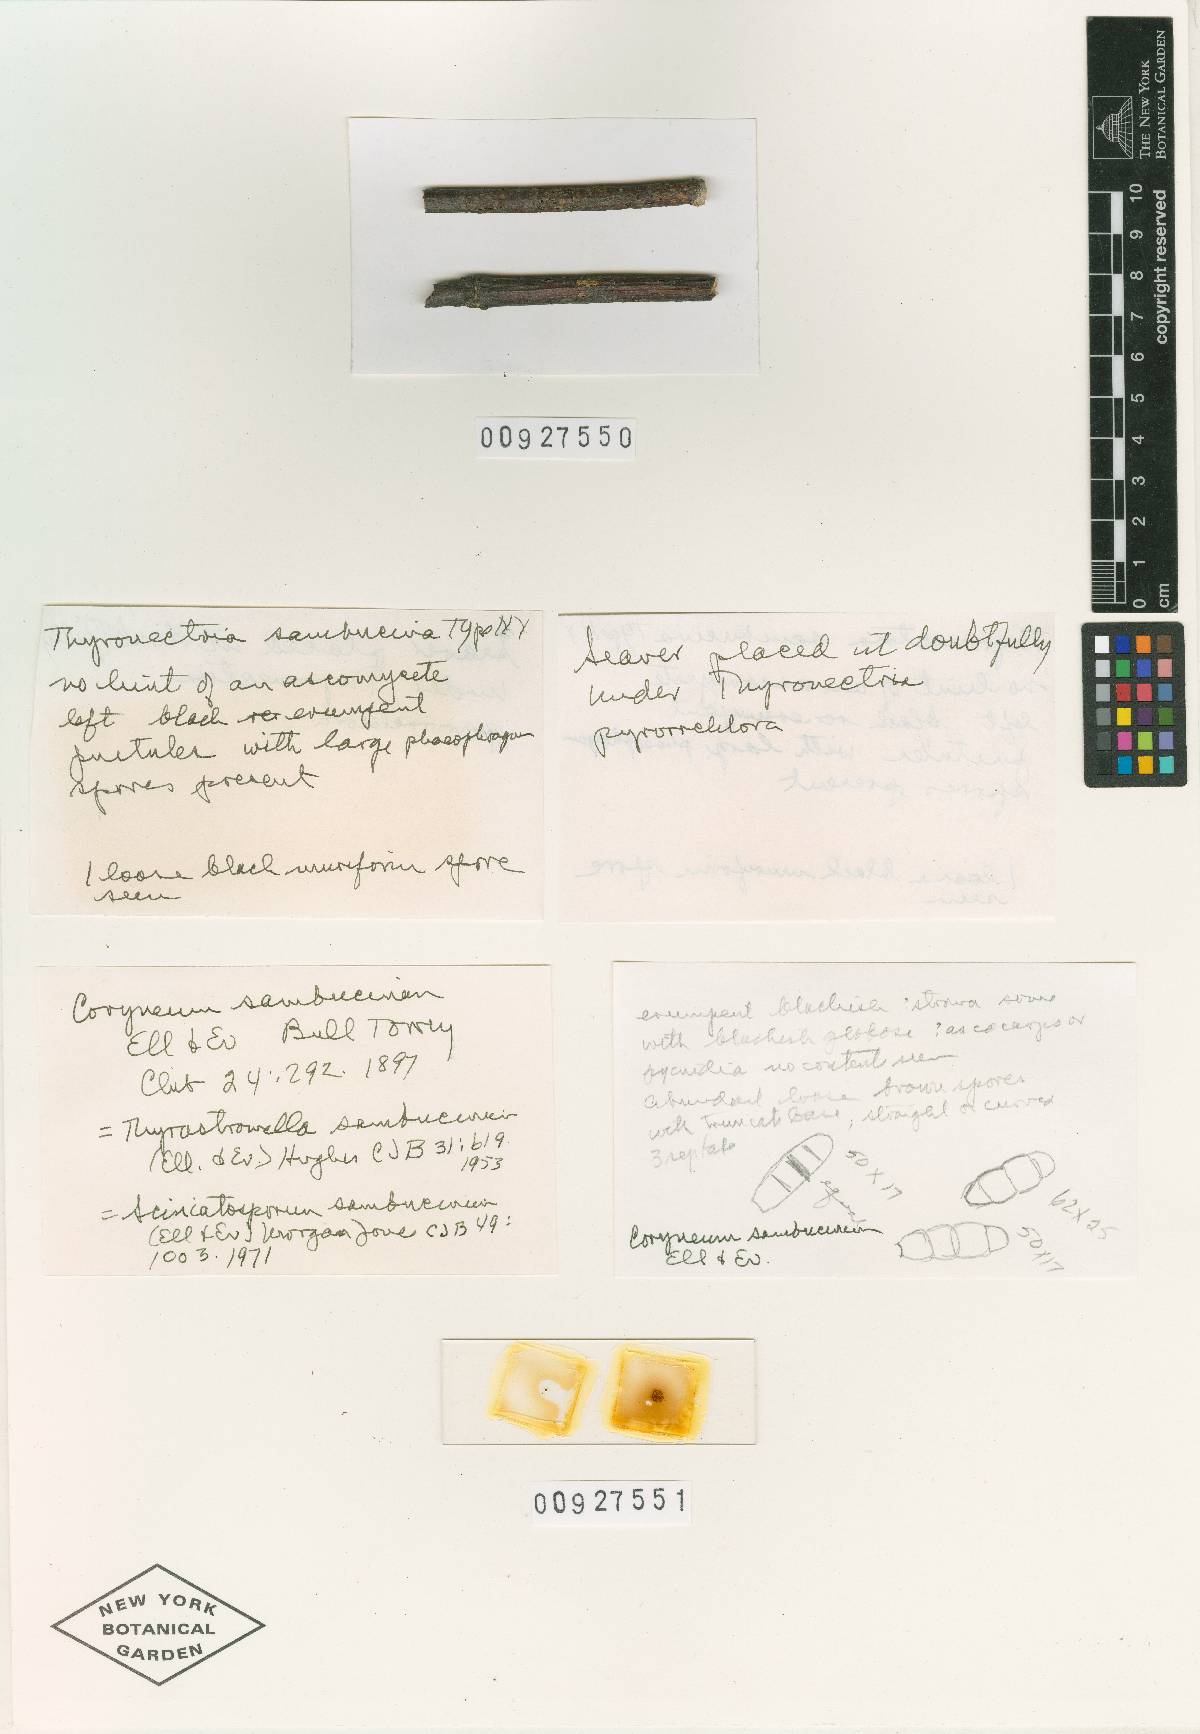 THE NEW YORK
BOTANICAL GARDEN
copyright reserved
10 9 8 7 6 5 4 3 2 1 0
cm
00927550
Thyronectria sambucina Type NY
no hint of an ascomycete
left black erumpent
pustules with large phaeophragm
spores present
1 loose black muriform spore
seen
Seaver placed it doubtfully
under Thyronectria
pyrrochlora
Coryneum sambucinum
Ell & Ev Bull Torrey
Club 24:292. 1897
= Thyrostromella sambucinum
(Ell. & Ev.) Hughes CJB 31:619.
1953
= Sciniatosporum sambucinum
(Ell & Ev) Morgan Jones CJB 49:
1003. 1971
erumpent blackish stroma some
with blackish globose ?ascocarps or
pycnidia no content seen
abundant loose brown spores
with truncate base; straight or curved
3 septate
50 x 17
62 x 25
50 x 17
Coryneum sambucinum
Ell & Ev.
00927551
NEW YORK
BOTANICAL
GARDEN